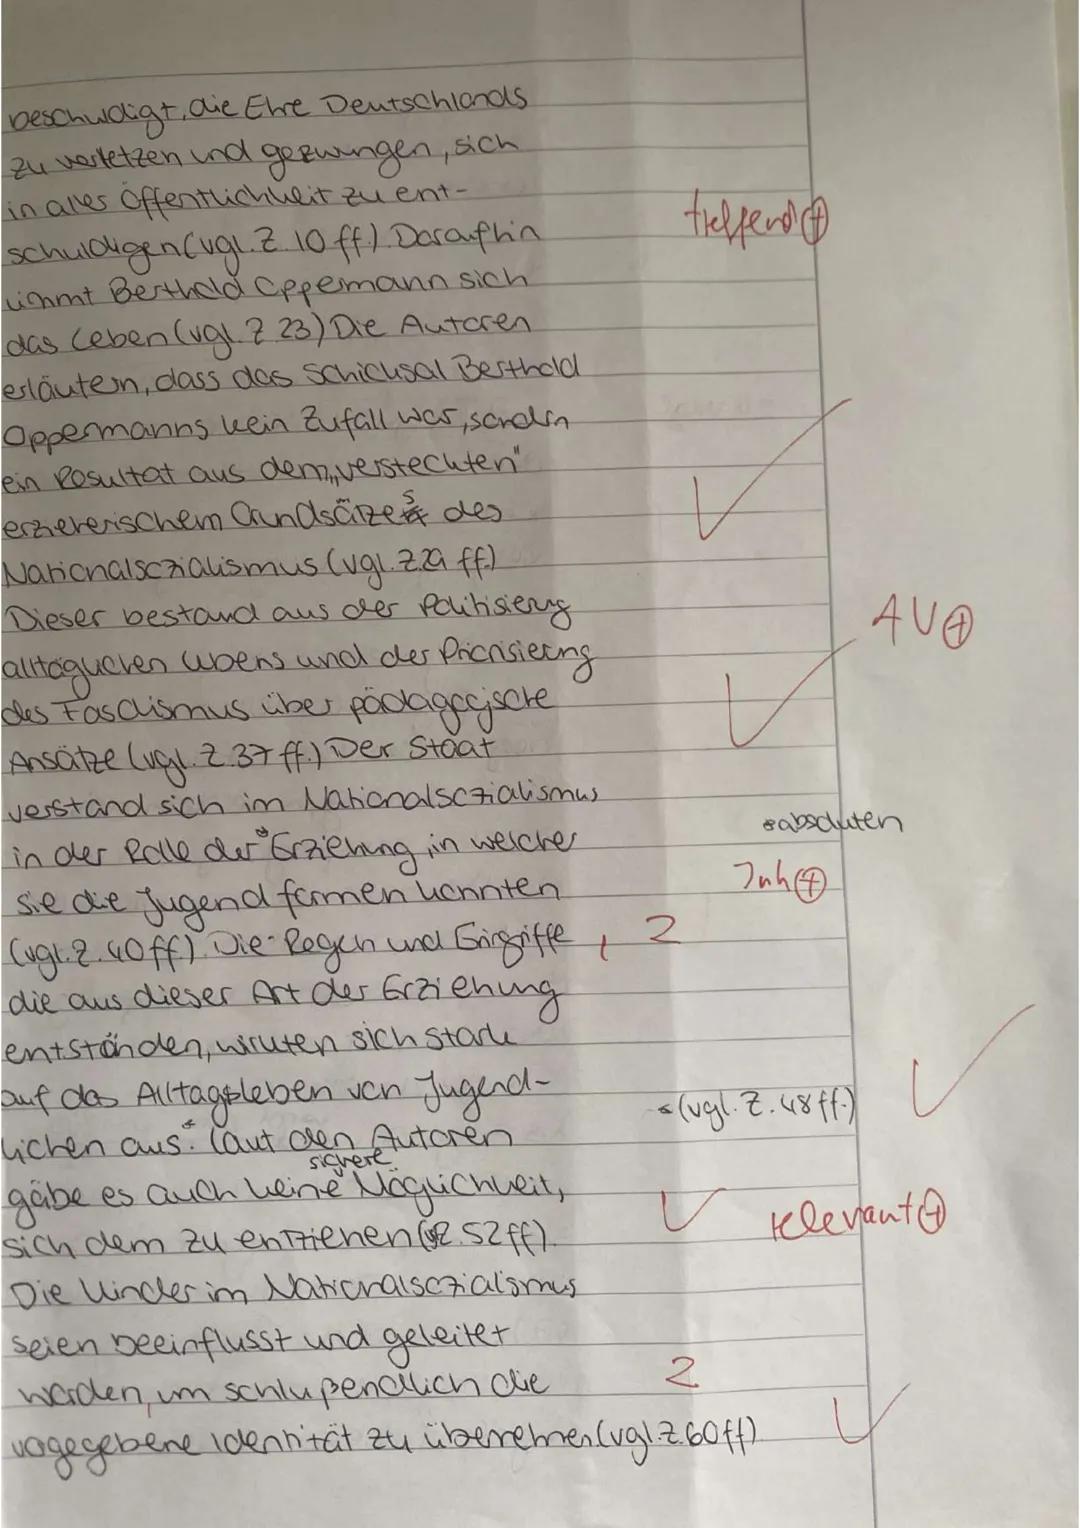 beschuldigt, die Ehre Deutschlands
zu verletzen und gezwungen, sich
in aller Öffentlichkeit zu ent-
schuldigen (vgl. Z. 10 ff.) Daraufhin
treffend ⊕
nimmt Berthold Oppermann sich
das Leben (vgl. Z 23) Die Autoren
erläutern, dass das Schicksal Berthold
Oppermanns kein Zufall war, sondern
ein Resultat aus dem „versteckten"
erzieherischem Grundsätzes des
Nationalsozialismus (vgl. Z. 29 ff.)
Dieser bestand aus der Politisierung
AV ⊕
alltäglichen Lebens und der Priorisierung
des Faschismus über pädagogische
Ansätze (vgl. Z. 37 ff.) Der Staat
verstand sich im Nationalsozialismus
*absoluten
in der Rolle der * Erziehung, in welcher
Inh ⊕
sie die Jugend formen konnten
(vgl. Z. 40 ff). Die Regeln und Eingriffe , Z
die aus dieser Art der Erziehung
entständen, wirkten sich stark
auf das Alltagsleben von Jugend-
*(vgl. Z. 48 ff.)
lichen aus.* Laut den Autoren
gäbe es auch keine sichere Möglichkeit,
relevant ⊕
sich dem zu entziehen (Z. 52 ff).
Die Kinder im Nationalsozialismus
seien beeinflusst und geleitet
worden, um schlussendlich die Z
vorgegebene Identität zu übernehmen (vgl. Z. 60 ff)